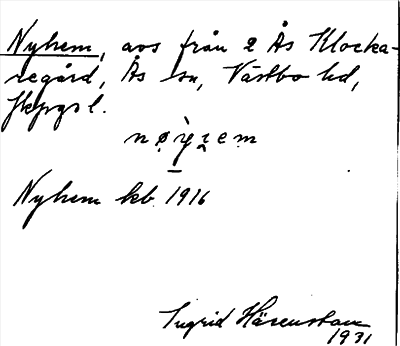 Nyhem, avs från 2 Ås Klocka-
regård, Ås sn, Västbo hd,
Jkpgs l.
Nyhem kb. 1916
Ingrid Härenstam
1931